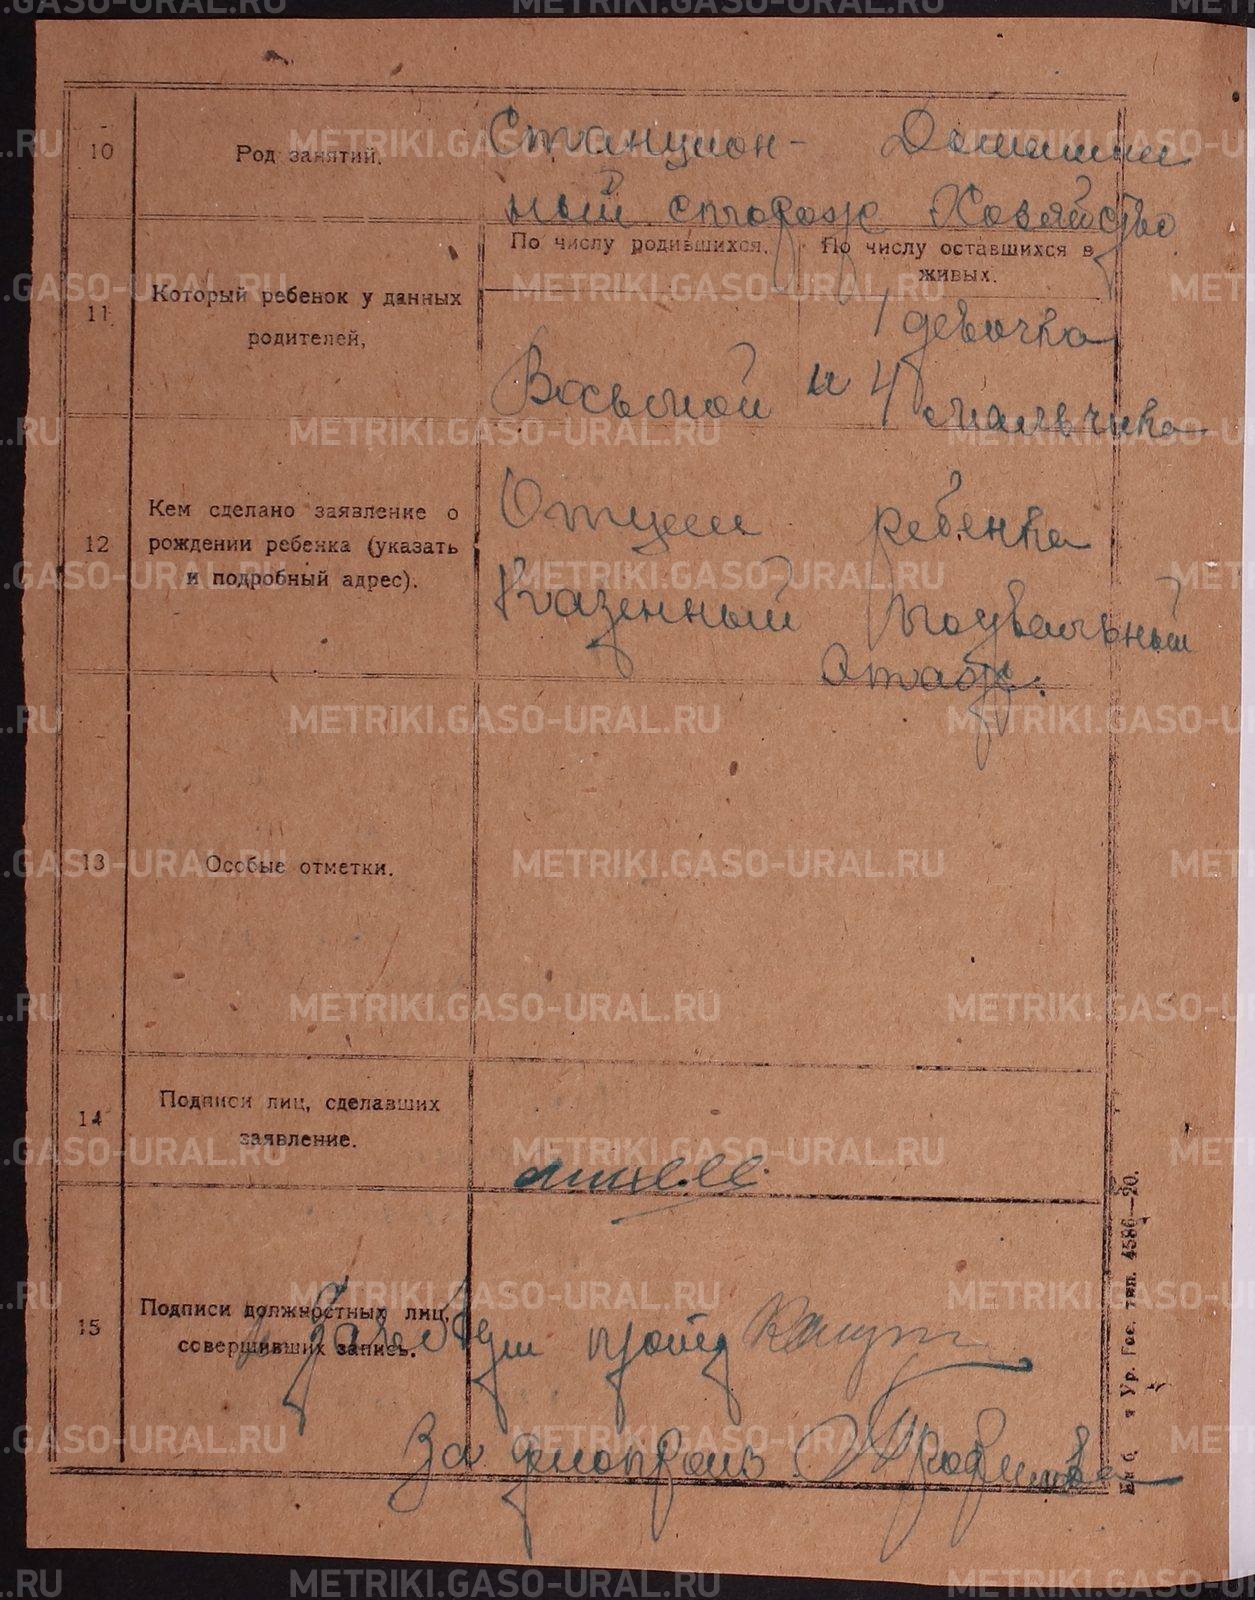 10
Род занятий.
Станцион- Домашнее
ный сторож Хозяйство
11
Который ребенок у данных
родителей,
По числу родившихся.
По числу оставшихся в
живых.
1 девочка
Восьмой и 4 мальчика
12
Кем сделано заявление о
рождении ребенка (указать
и подробный адрес).
Отцем ребенка
Казенный подвальный
этаж.
13
Особые отметки.
14
Подписи лиц, сделавших
заявление.
15
Подписи должностных лиц,
совершивших запись.
За
4586—20.
Ур. Гос. тип.
METRIKI.GASO-URAL.RU